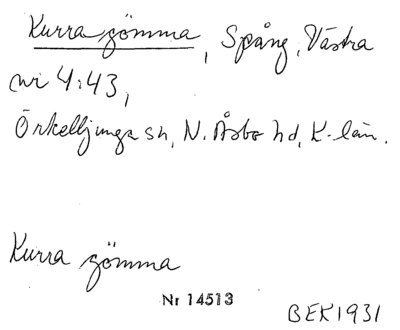 Kurra gömma, Spång, Västra
nr 4:43,
Örkelljunga sn, N. Åsbo hd, K-län.
Kurra gömma
Nr 14513
BEK1931